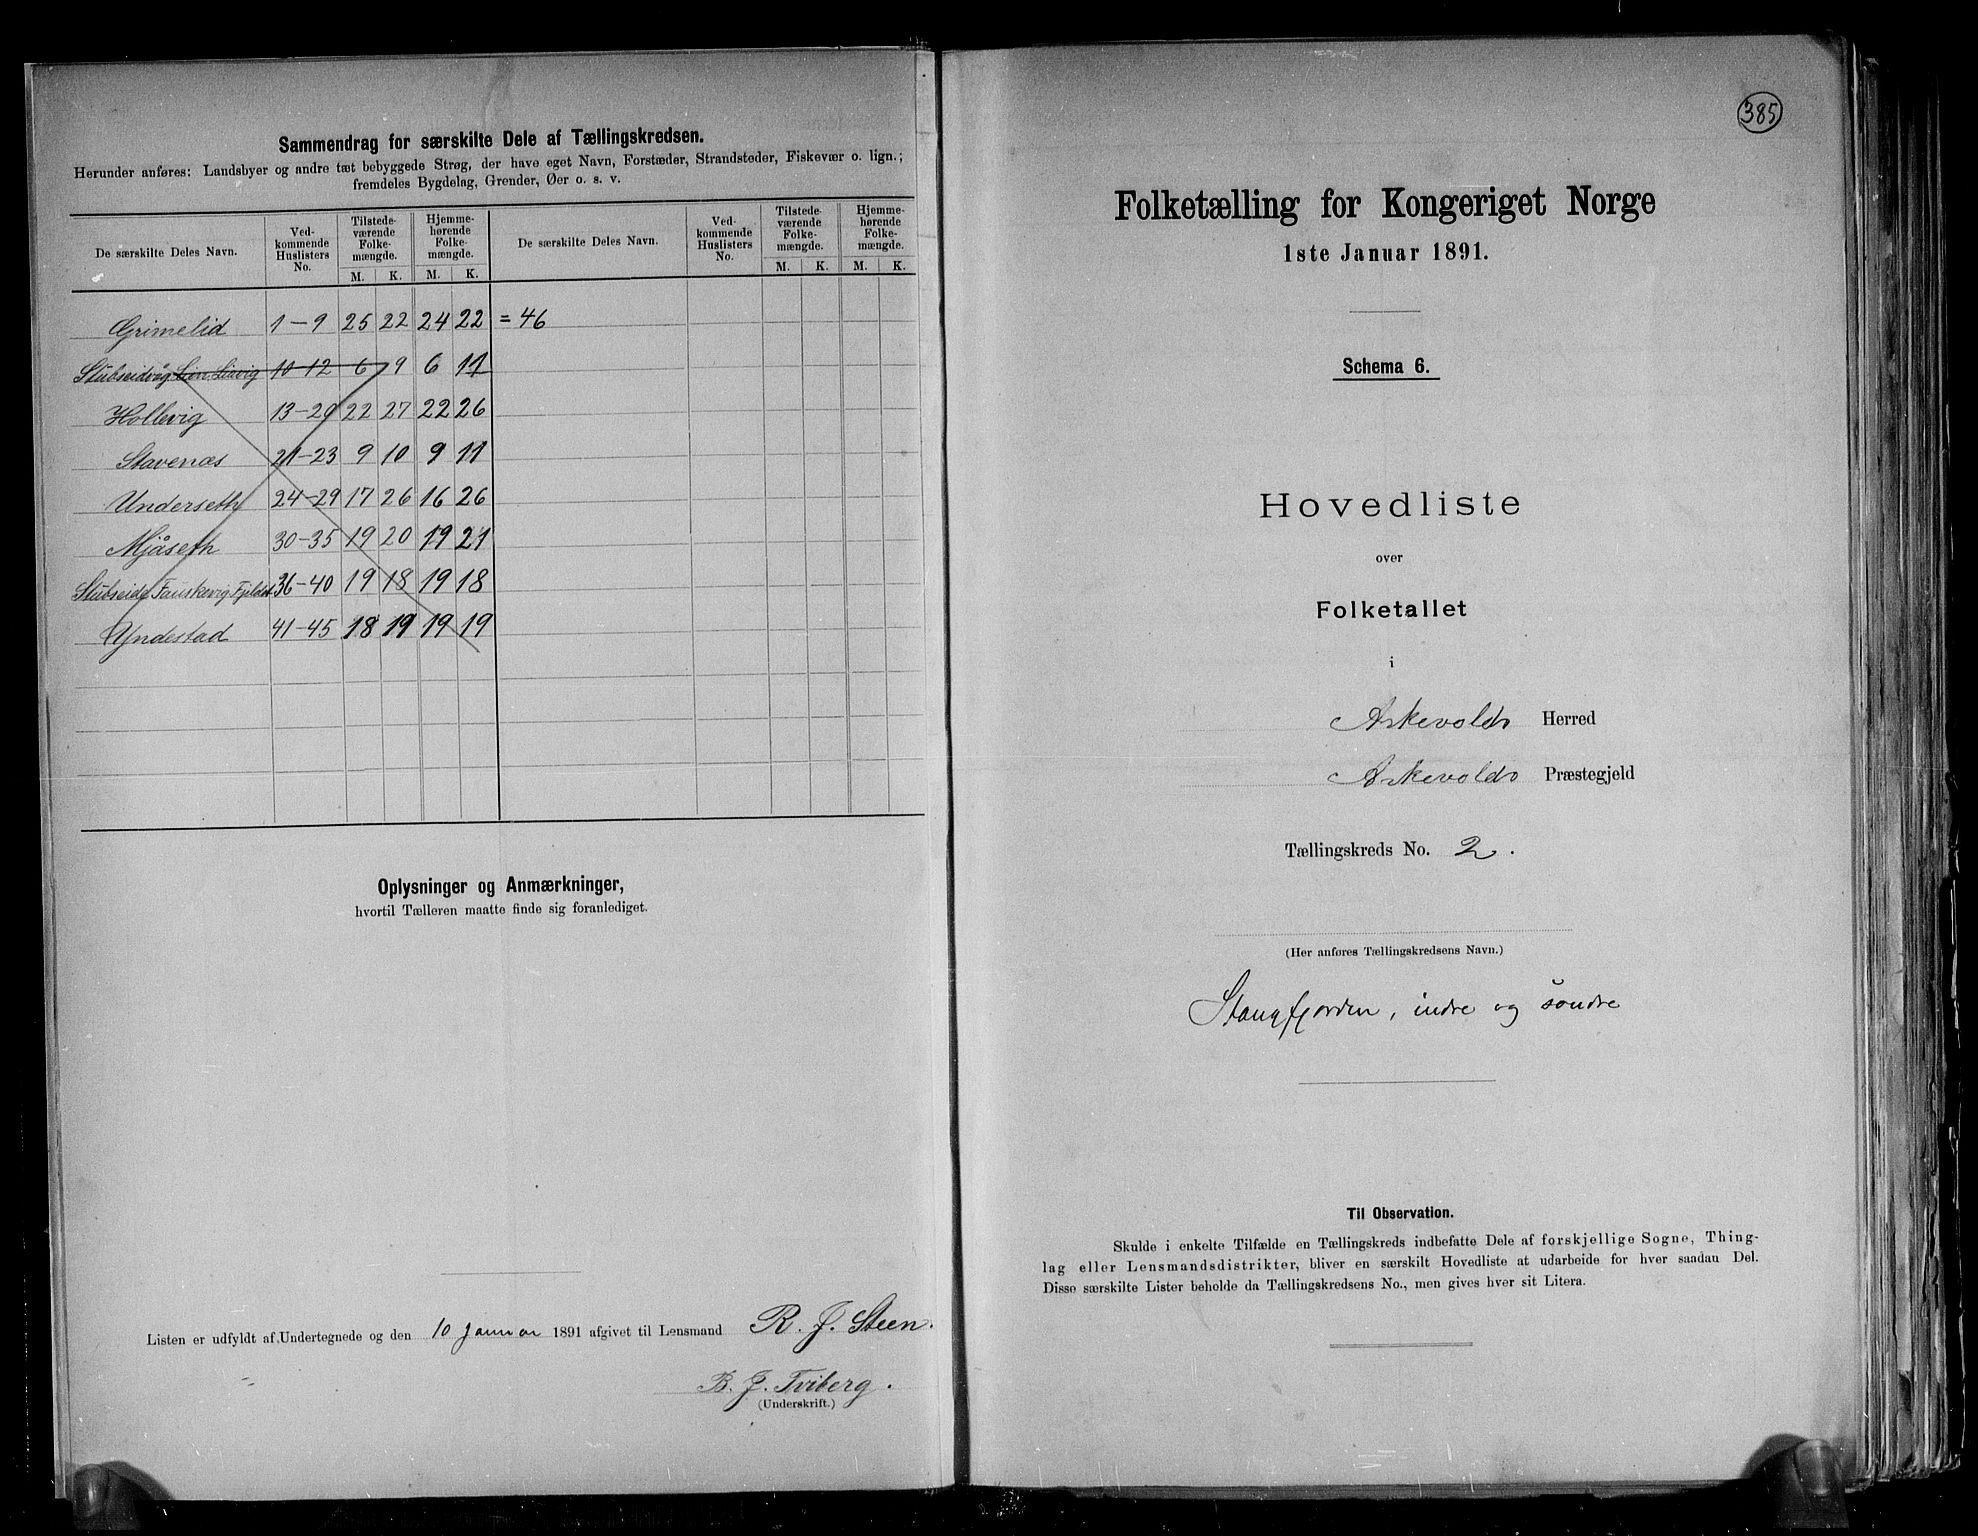 Sammendrag for særskilte Dele af Tællingskredsen.
Herunder anføres: Landsbyer og andre tæt bebyggede Strøg, der have eget Navn, Forstæder, Strandsteder, Fiskevær o. lign.;
fremdeles Bygdelag, Grender, Øer o. s. v.
De særskilte Deles Navn. Ved-kommende Huslisters No. Tilstede-værende Folke-mængde. M. K. Hjemme-hørende Folke-mængde. M. K. De særskilte Deles Navn. Ved-kommende Huslisters No. Tilstede-værende Folke-mængde. M. K. Hjemme-hørende Folke-mængde. M. K.
Grimelid 1-9 25 22 24 22 = 46
Stubseidvåg Lien 10-12 6 9 6 11
Hollevig 13-20 22 27 22 26
Stavenæs 21-23 9 10 9 11
Underseth 24-29 17 26 16 26
Mjåseth 30-35 19 20 19 21
Stubseide Fauskevig Fjeldet 36-40 19 18 19 18
Yndestad 41-45 18 19 19 19
Oplysninger og Anmærkninger,
hvortil Tælleren maatte finde sig foranlediget.
Listen er udfyldt af Undertegnede og den 10 Januar 1891 afgivet til Lensmand R. J. Steen.
B. J. Tviberg.
(Underskrift.)
385
Folketælling for Kongeriget Norge
1ste Januar 1891.
Schema 6.
Hovedliste
over
Folketallet
i
Askevolds Herred
Askevolds Præstegjeld
Tællingskreds No. 2.
(Her anføres Tællingskredsens Navn.)
Stangfjorden, indre og söndre
Til Observation.
Skulde i enkelte Tilfælde en Tællingskreds indbefatte Dele af forskjellige Sogne, Thing-
lag eller Lensmandsdistrikter, bliver en særskilt Hovedliste at udarbeide for hver saadan Del.
Disse særskilte Lister beholde da Tællingskredsens No., men gives hver sit Litera.